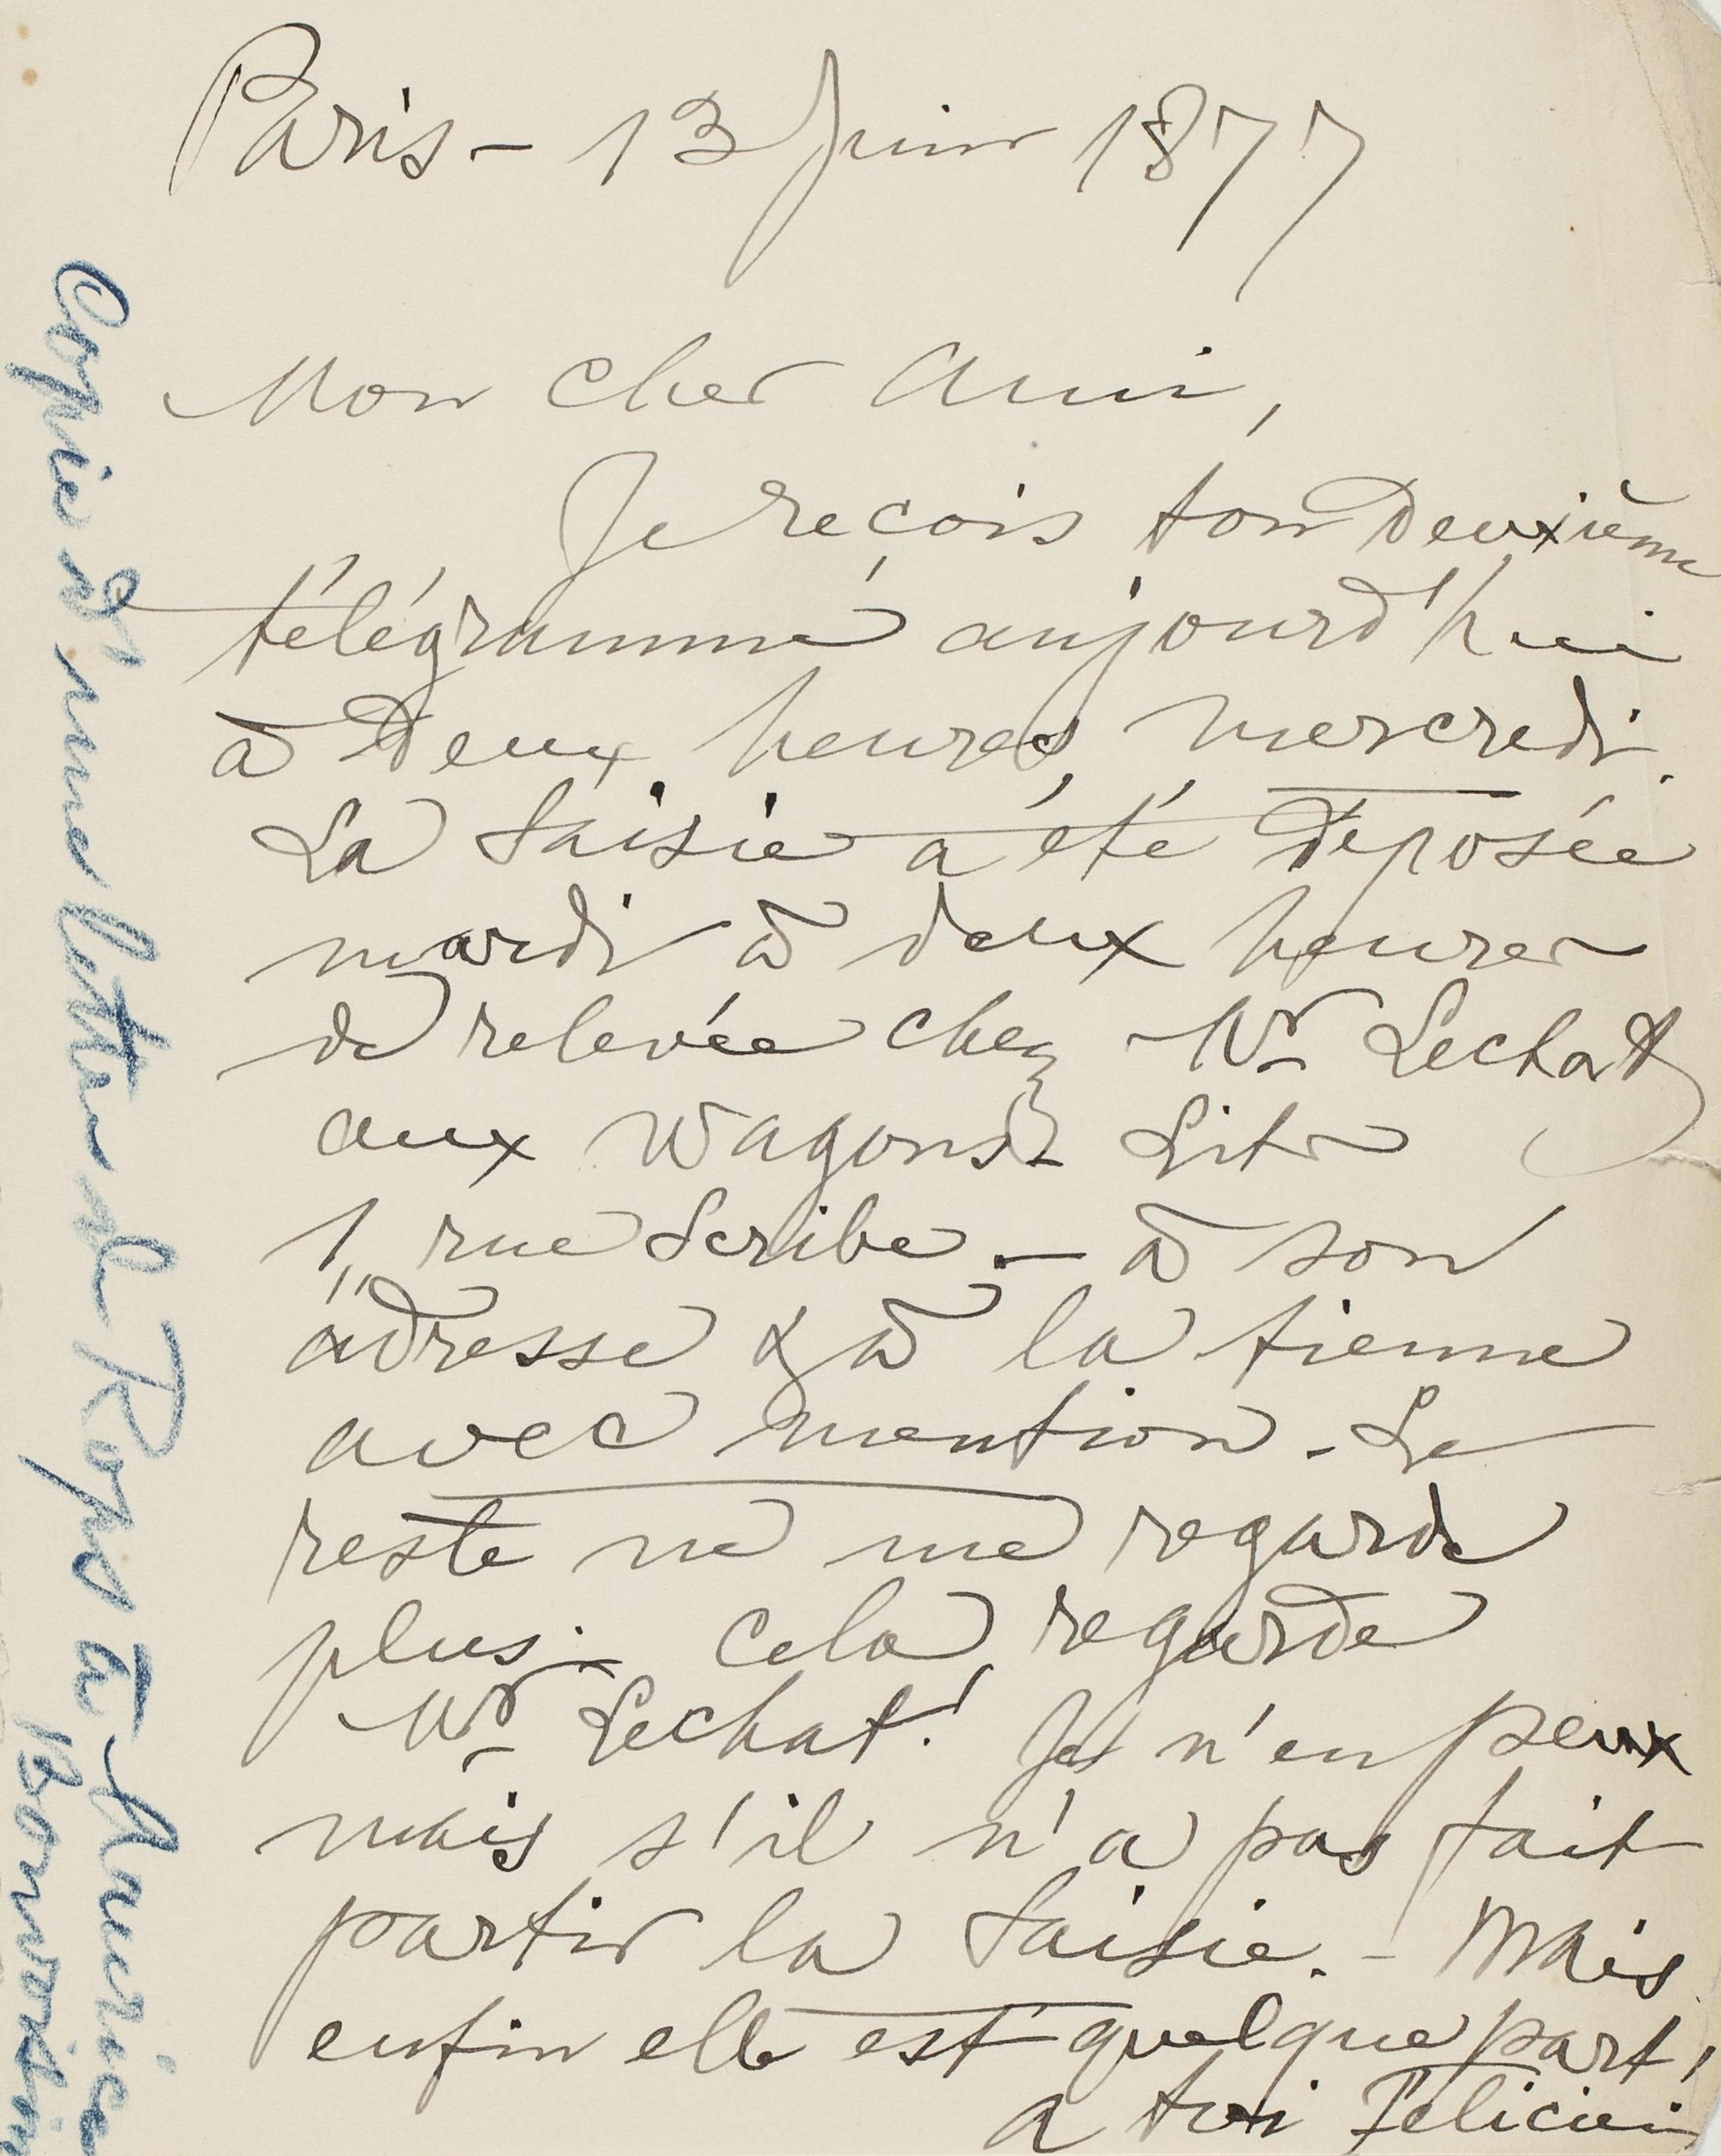 Paris – 13 Juin 1877
Mon cher Ami,
Je reçois ton deuxième
télégramme aujourd'hui
à deux heures, mercredi.
La Saisie a été déposée
mardi à deux heures
de relevée chez Mr Lechat
aux Wagons Lits
1, rue Scribe. – à son
adresse & à la tienne
avec mention. Le
reste ne me regarde
plus. – Cela regarde
Mr Lechat! Je n'en peux
mais s'il n'a pas fait
partir la Saisie. – Mais
enfin elle est quelque part!
a toi Félicien
Copie d'une lettre de Rops à Maurice
Bonvoisin